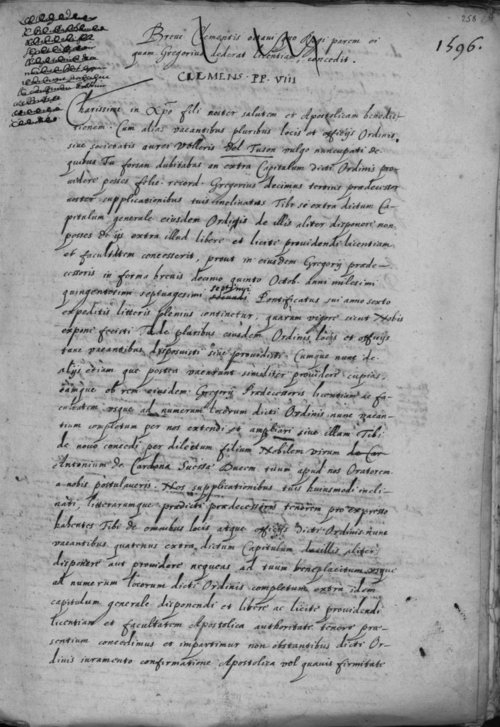 258
1596.
Breve Clementis octavi quo Regi parem ei
quam Gregorius dederat licentiam concedit.
CLEMENS PP VIII
Charissime in Xpo fili noster salutem et Apostolicam benedic-
tionem. Cum alias vacantibus pluribus locis et officijs Ordinis,
sive societatis aurei Velleris del Tuson vulgo nuncupati de
quibus Tu forsan dubitabas an extra Capitulum dicti Ordinis pro-
videre posses felic. record. Gregorius decimus tertius praedecessor
noster supplicationibus tuis inclinatus Tibi se extra dictum Ca-
pitulum generale eiusdem Ordinis de illis aliter disponere non
posses de ijs extra illud libere et licite providendi licentiam
et facultatem concesserit, prout in eiusdem Gregorij praede-
cessoris in forma brevis decimo quinto Octob. anni millesimi
quingentesimi septuagesimi septimi Pontificatus sui anno sexto
expeditis litteris plenius continetur, quarum vigore sicut Nobis
exponi fecisti Tu de pluribus eiusdem Ordinis locis et officijs
tunc vacantibus disposuisti sive providisti. Cumque nunc de
alijs etiam que postea vacarunt similiter providere cupias,
eamque ob rem eiusdem Gregorij Praedecessoris licentiam ac fa-
cultatem usque ad numerum locorum dicti Ordinis nunc vacan-
tium completum per nos extendi et ampliari sive illam Tibi
de novo concedi per dilectum filium Nobilem virum
Antonium de Cardona Suessae Ducem tuum apud nos Oratorem
a nobis postulaveris. Nos supplicationibus tuis huiusmodi incli-
nati, litterarumque praedicti praedecessoris tenorem pro expresso
habentes Tibi de omnibus locis atque officijs dicti Ordinis nunc
vacantibus quatenus extra dictum Capitulum de illis aliter
disponere aut providere nequeas ad tuum beneplacitum usque
ad numerum locorum dicti Ordinis completum extra idem
capitulum generale disponendi et libere ac licite providendi
licentiam et facultatem Apostolica authoritate tenore prae-
sentium concedimus et impartimur non obstantibus dicti Or-
dinis iuramento confirmatione Apostolica vel quavis firmitate